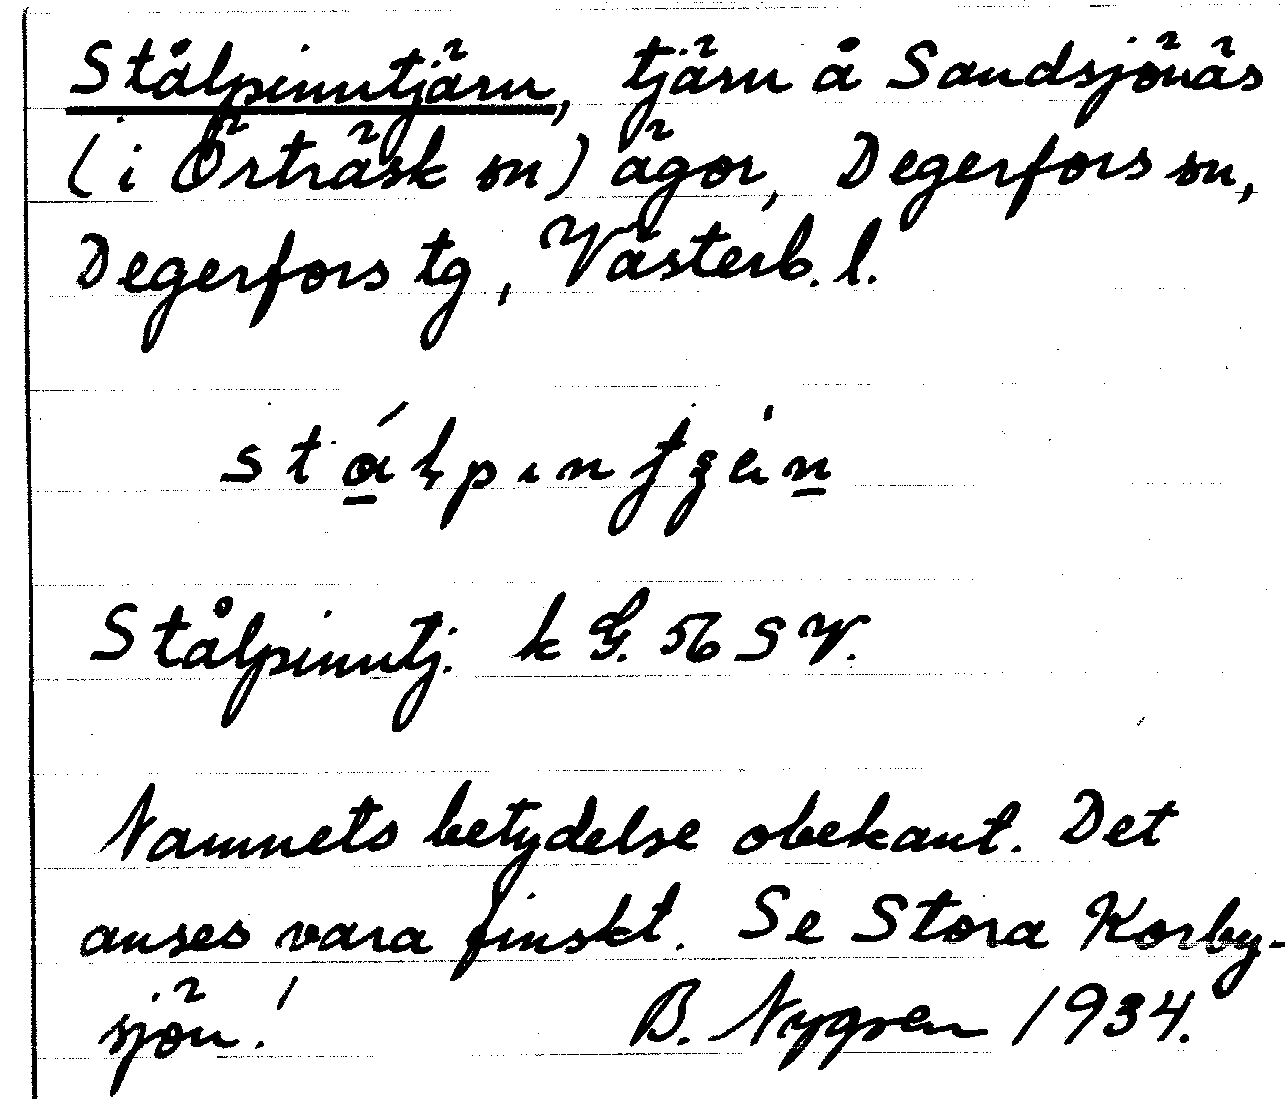 Stålpinntjärn, tjärn å Sandsjönäs
(i Örträsk sn) ägor, Degerfors sn,
Degerfors tg, Västerb. l.
Stålpinntj. k G. 56 S V.
Namnets betydelse obekant. Det
anses vara finskt. Se Stora Korby-
sjön!
B. Nygren 1934.